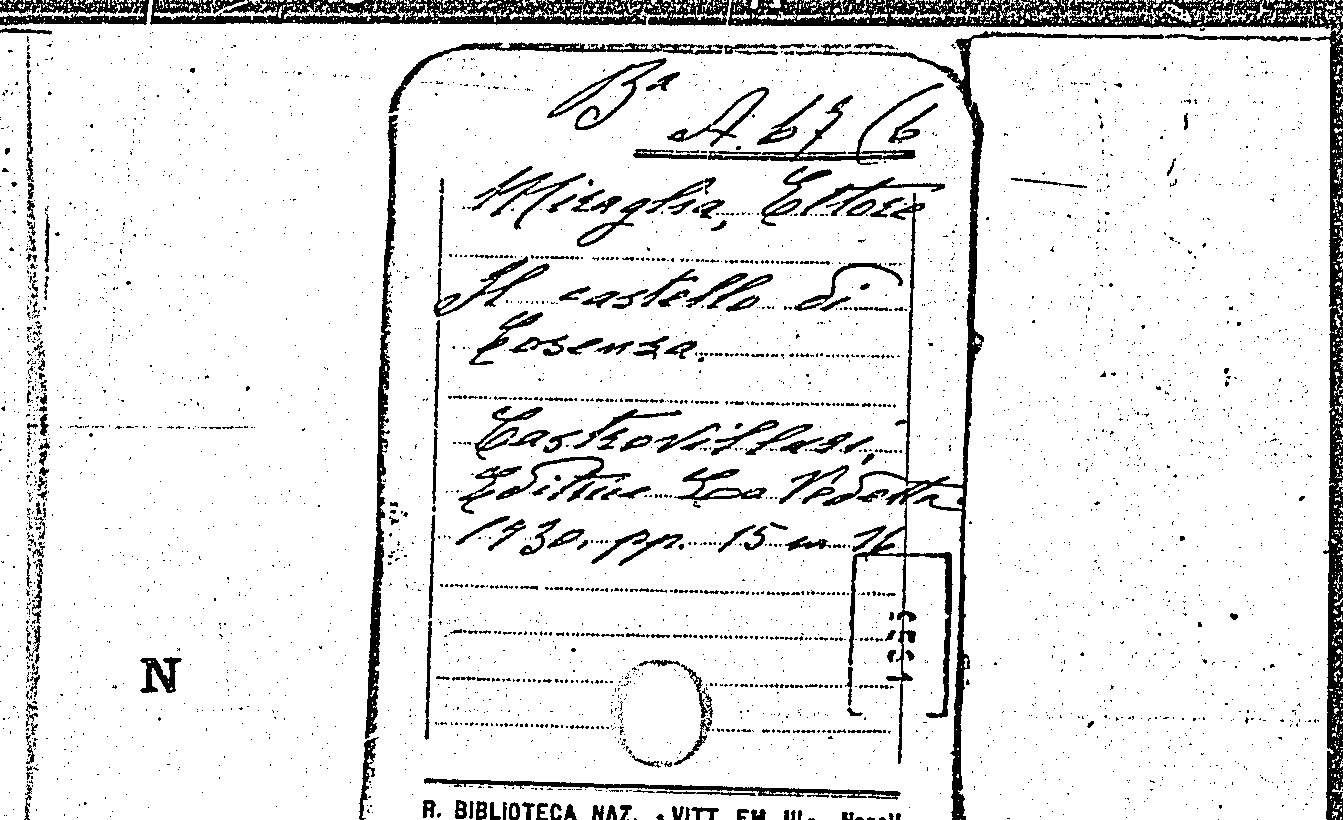 Ba
A. 67 (6
Miraglia, Ettore
Il castello di
Cosenza.
Castrovillari,
Editrice La Vedetta,
1930. pp. 15 in 16
N
R. BIBLIOTECA NAZ. - VITT. EM. III - Napoli